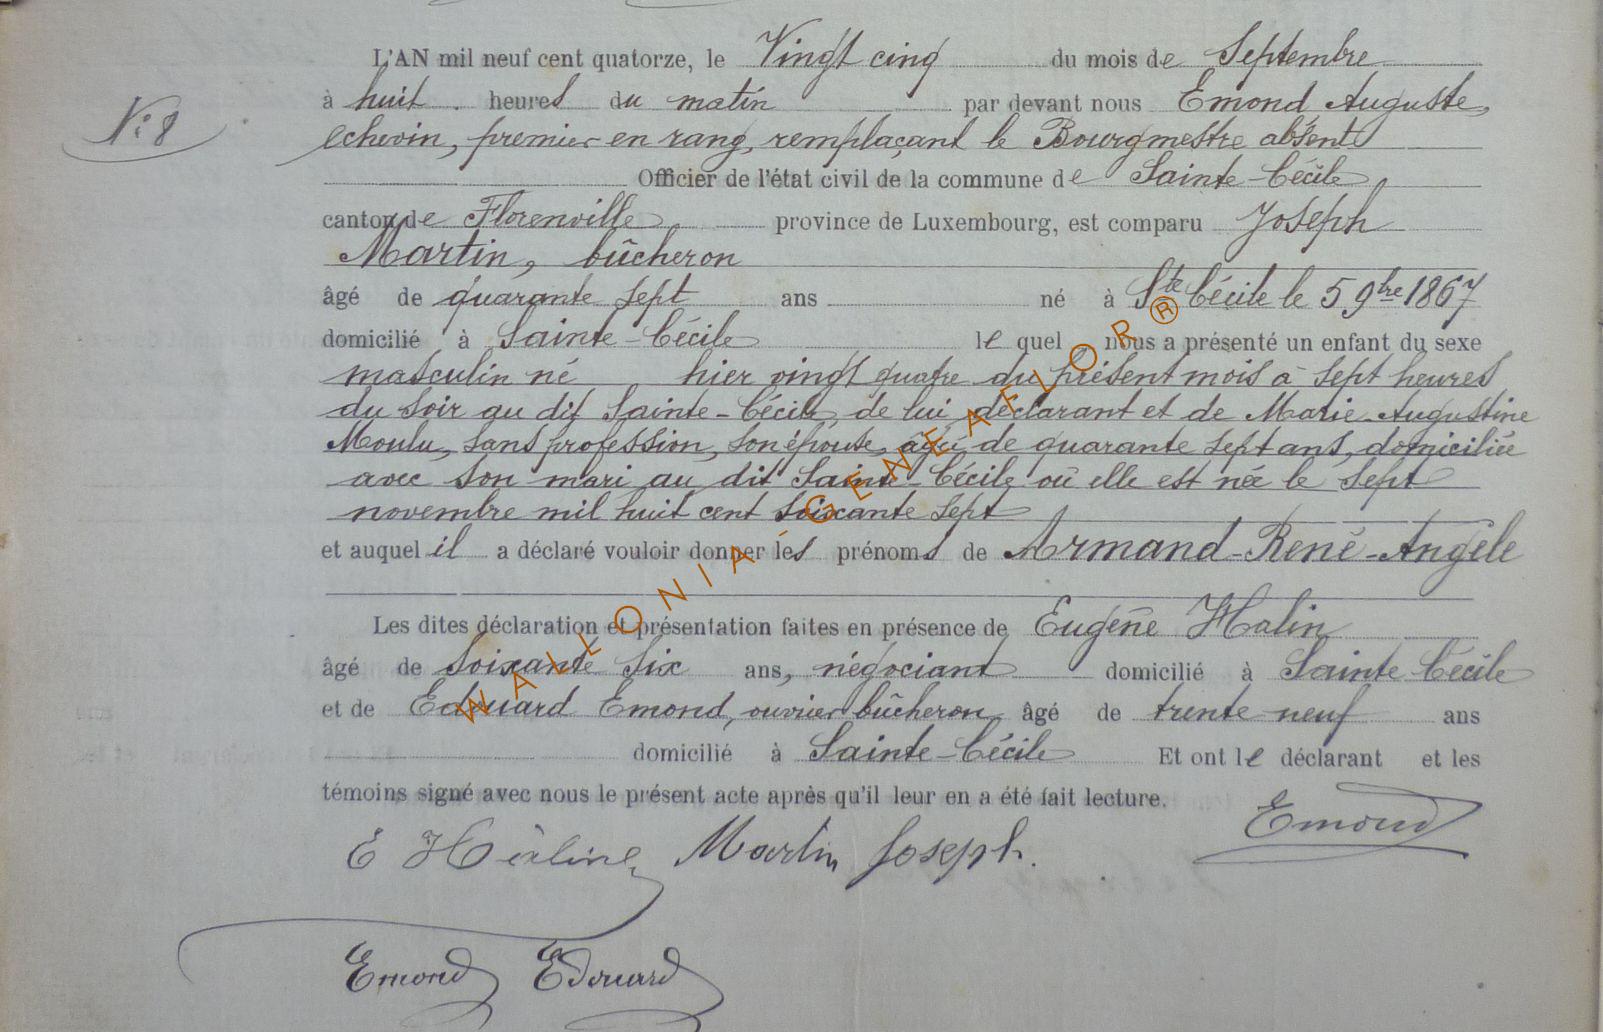 L'AN mil neuf cent quatorze, le Vingt cinq du mois de Septembre
N° 8
à huit heures du matin par devant nous Emond Auguste,
echevin, premier en rang, remplaçant le Bourgmestre absent
Officier de l'état civil de la commune de Sainte-Cécile
canton de Florenville province de Luxembourg, est comparu Joseph
Martin, bûcheron
âgé de quarante sept ans né à Ste Cécile le 5 9bre 1867
domicilié à Sainte-Cécile lequel nous a présenté un enfant du sexe
masculin né hier vingt quatre du présent mois à sept heures
du soir au dit Sainte-Cécile, de lui déclarant et de Marie-Augustine
Moulu, sans profession, son épouse, âgée de quarante sept ans, domiciliée
avec son mari au dit Sainte-Cécile où elle est née le sept
novembre mil huit cent soixante sept
et auquel il a déclaré vouloir donner les prénoms de Armand-René-Angèle
Les dites déclaration et présentation faites en présence de Eugène Halin
âgé de soixante six ans, négociant domicilié à Sainte Cécile
et de Edouard Emond, ouvrier bûcheron âgé de trente neuf ans
domicilié à Sainte-Cécile Et ont le déclarant et les
témoins signé avec nous le présent acte après qu'il leur en a été fait lecture.
Emond
E Halin Martin Joseph.
Emond Edouard
WALLONIA-GENEAFLOR®